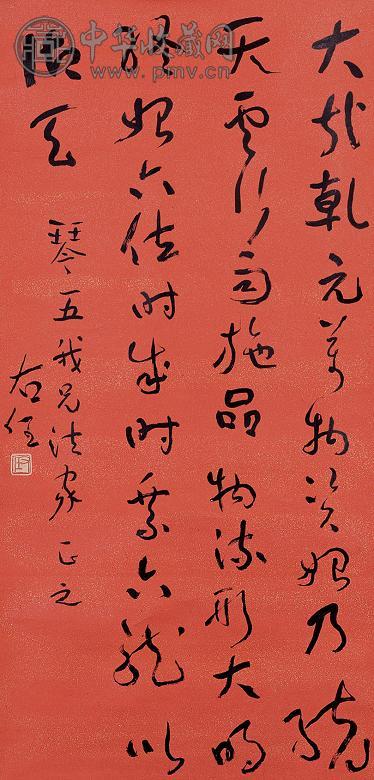 中华收藏网
www.pmv.cn
大哉乾元萬物資始乃統
天雲行雨施品物流形大明
終始六位時成時乘六龍以
御天
琴五我兄法家正之
右任